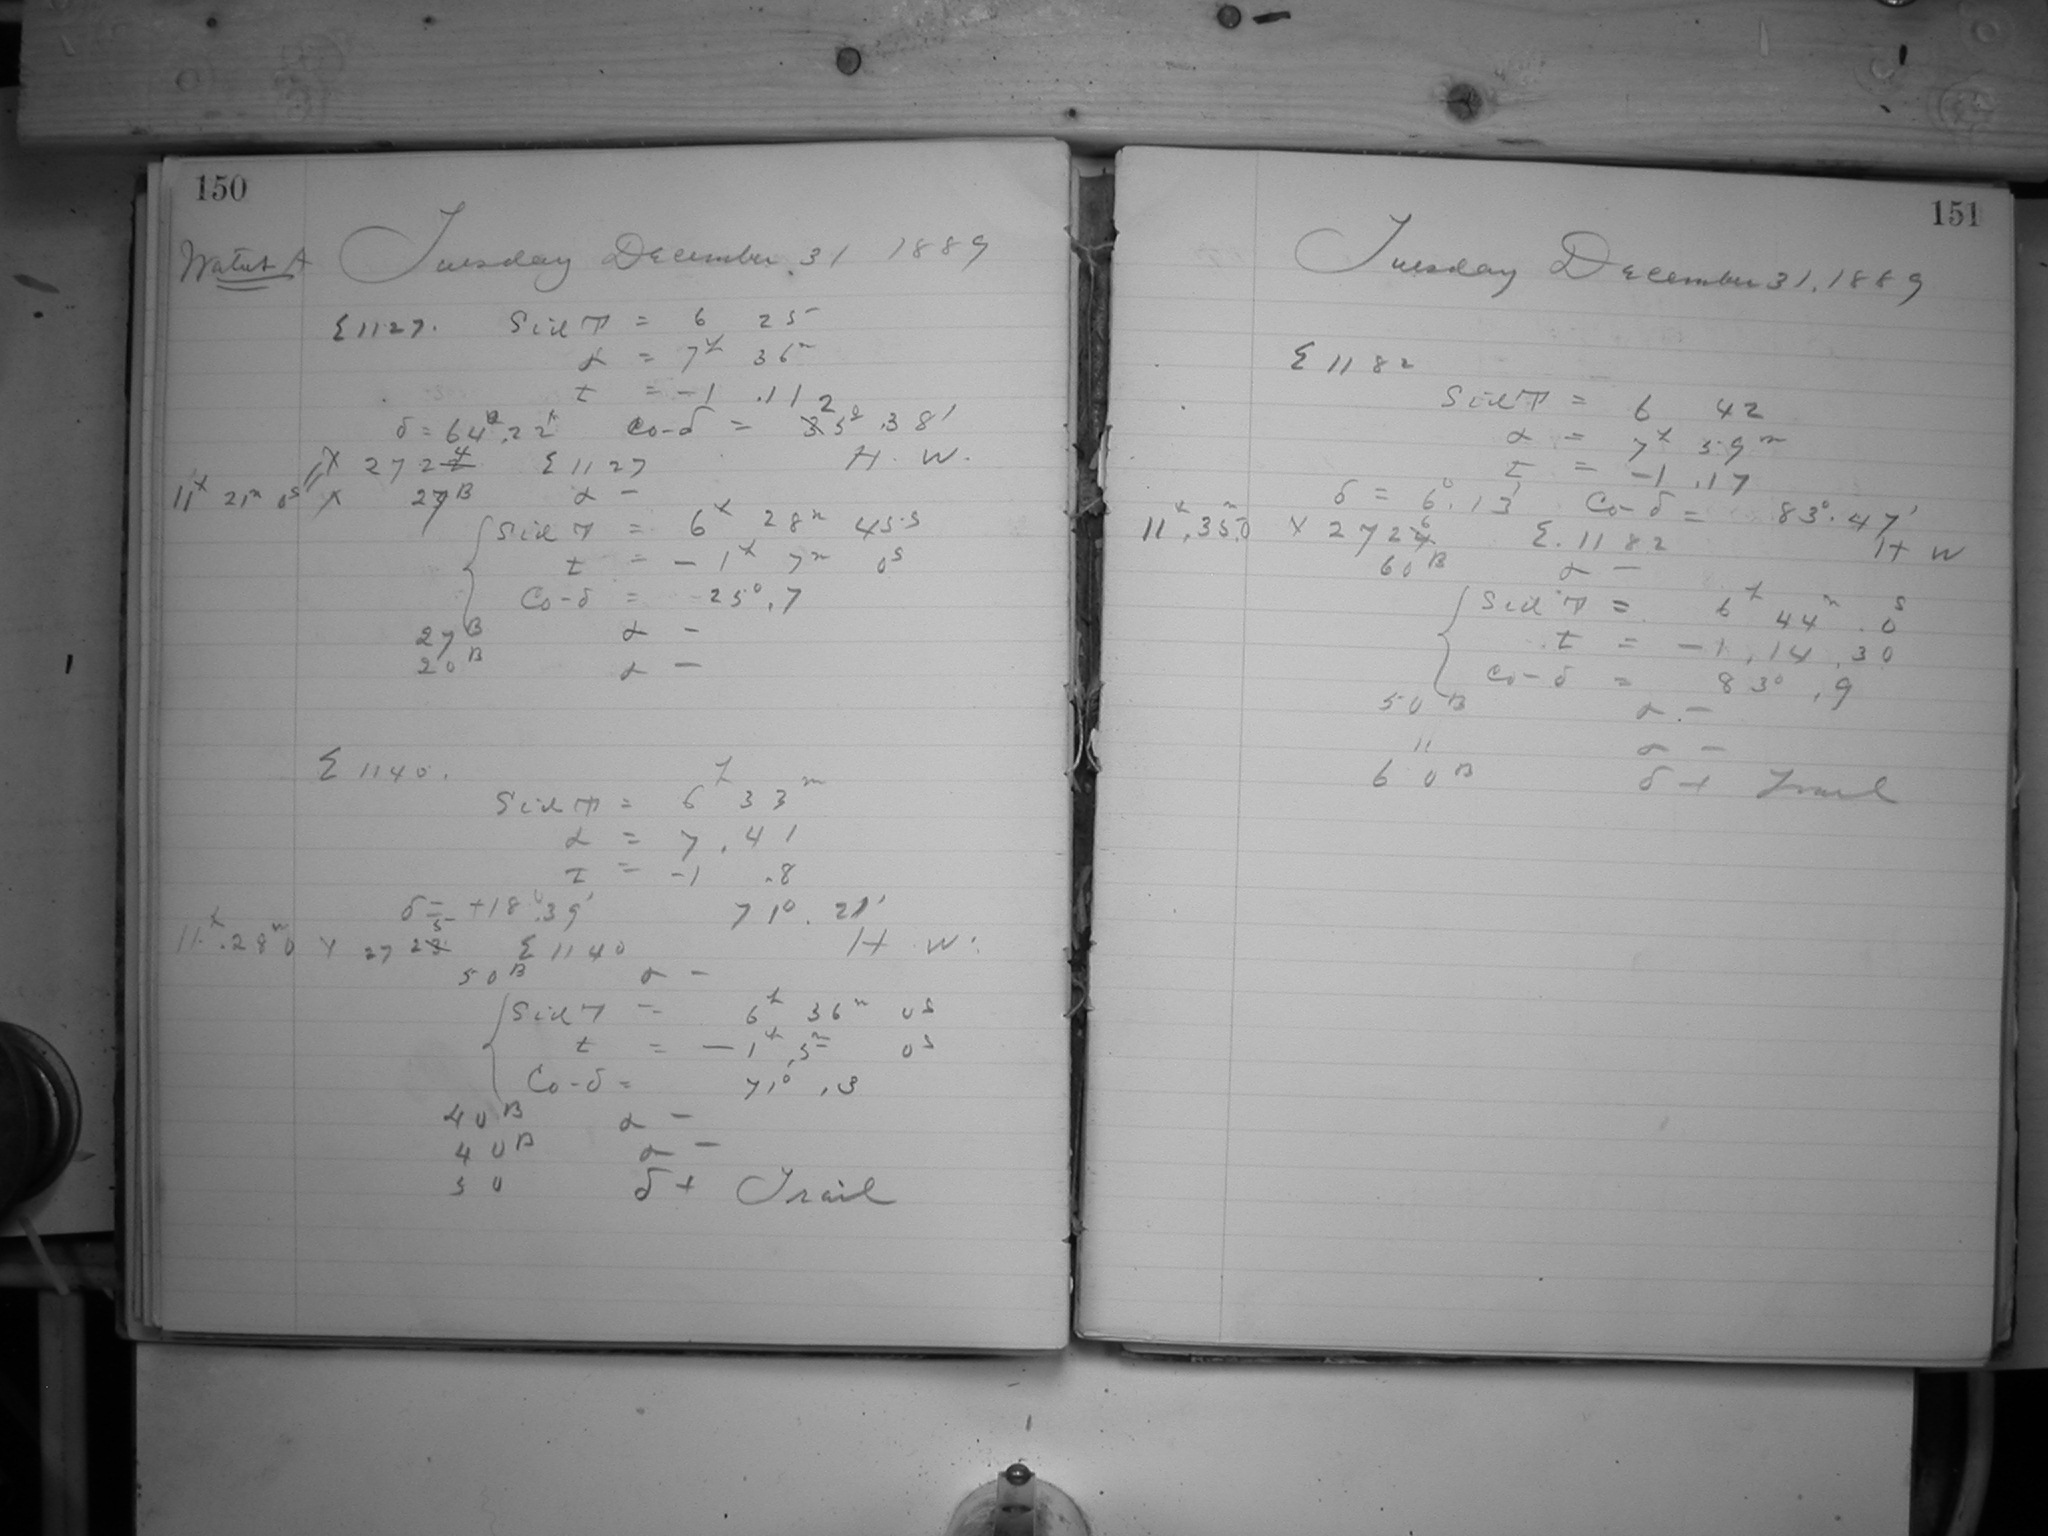 150
Tuesday December 31 1889
Σ 1127. Sid T = 6 25
α = 7h 36m
t = -1 .11
δ = 64°.22' Co-δ = 25° .38'
X 2724 Σ 1127 H. W.
11h 21m 0s X 27B α -
Sid T = 6h 28m 45s
t = - 1h 7m 0s
Co-δ = 25°.7
27B α -
20B α -
Σ 1140.
Sid T = 6h 33m
α = 7 . 41
t = -1 .8
δ = +18°.39' 71°. 21'
11h.28m 0 X 2725 Σ 1140 H W.
50B α -
Sid T = 6h 36m 0s
t = - 1h .5m 0s
Co-δ = 71° .3
40B α -
40B α -
50 δ + Trail
151
Tuesday December 31. 1889
Σ 1182
Sid T = 6 42
α = 7h 59m
t = -1 .17
δ = 6°.13' Co-δ = 83°. 47'
11h.35m.0 X 2726 Σ. 1182 H W
60B α -
Sid T = 6h 44m .0s
t = -1 .14 .30
Co-δ = 83° .9
50B α -
" α -
60B δ + Trail